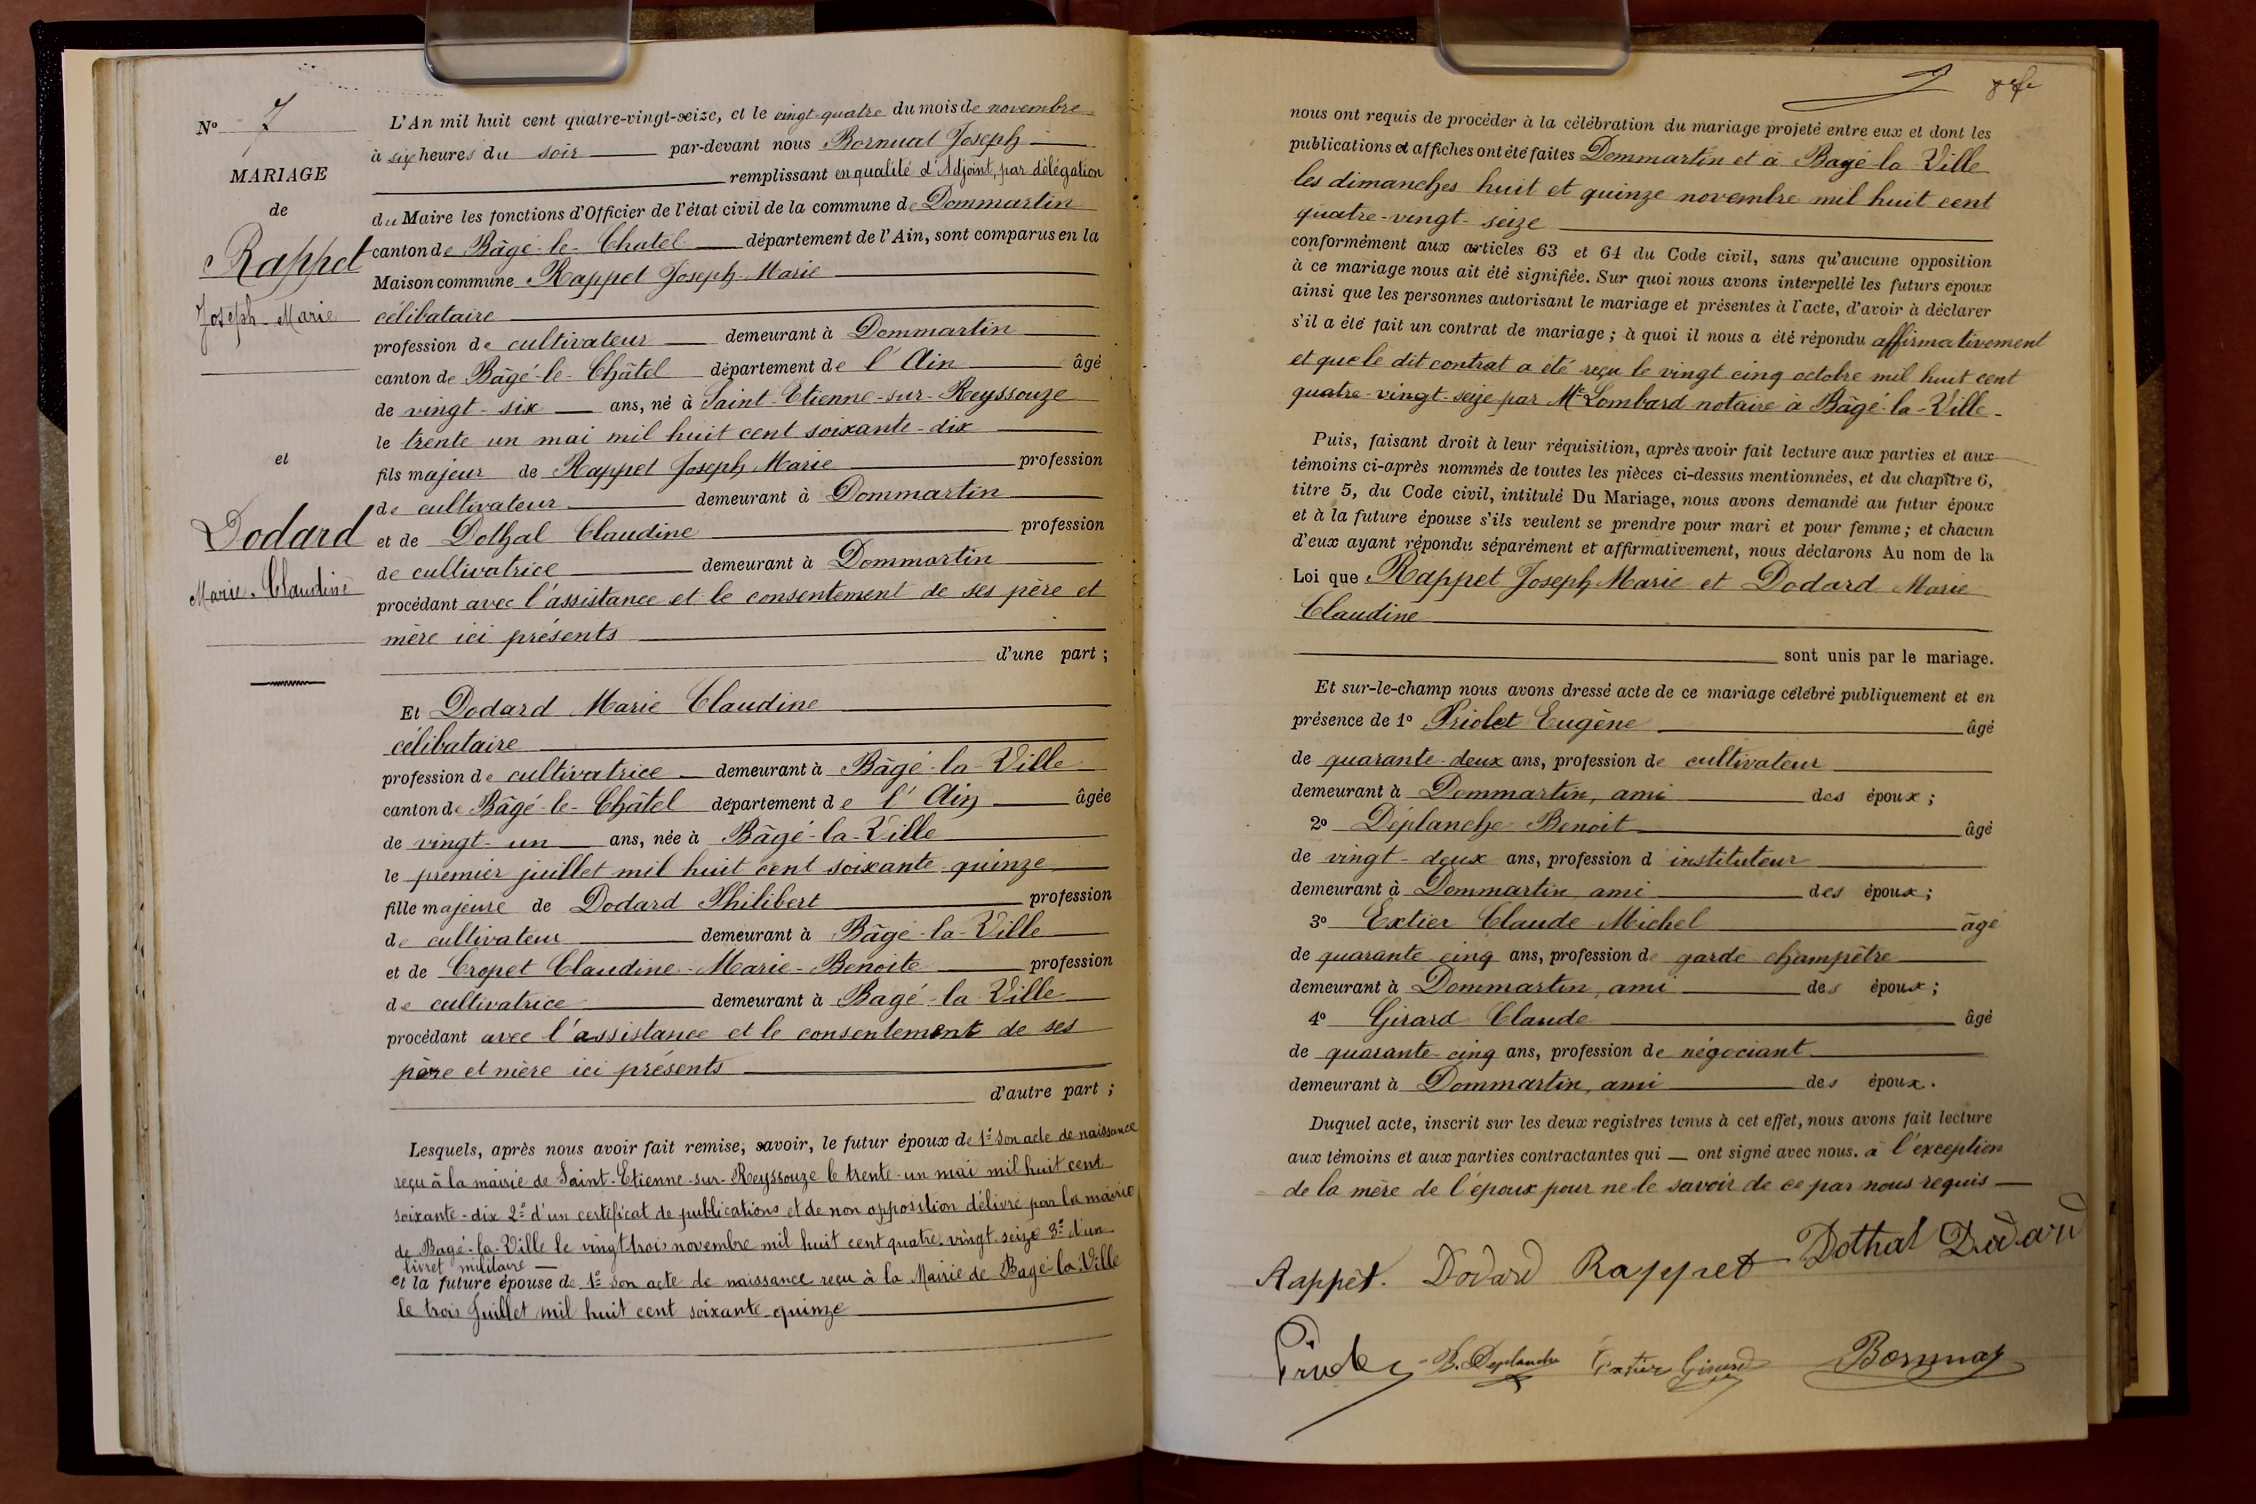 N° 7
MARIAGE
de
Rappet
Joseph-Marie
et
Dodard
Marie-Claudine
L'An mil huit cent quatre-vingt-seize, et le vingt-quatre du mois de novembre
à six heures du soir par-devant nous Bornuat Joseph
remplissant en qualité d'Adjoint, par délégation
du Maire les fonctions d'Officier de l'état civil de la commune de Dommartin
canton de Bâgé-le-Chatel département de l'Ain, sont comparus en la
Maison commune Rappet Joseph-Marie
célibataire
profession de cultivateur demeurant à Dommartin
canton de Bâgé-le-Châtel département de l'Ain âgé
de vingt-six ans, né à Saint-Etienne-sur-Reyssouze
le trente un mai mil huit cent soixante-dix
fils majeur de Rappet Joseph Marie profession
de cultivateur demeurant à Dommartin
et de Dothal Claudine profession
de cultivatrice demeurant à Dommartin
procédant avec l'assistance et le consentement de ses père et
mère ici présents
d'une part ;
Et Dodard Marie Claudine
célibataire
profession de cultivatrice demeurant à Bâgé-la-Ville
canton de Bâgé-le-Châtel département de l'Ain âgée
de vingt-un ans, née à Bâgé-la-Ville
le premier juillet mil huit cent soixante-quinze
fille majeure de Dodard Philibert profession
de cultivateur demeurant à Bâgé-la-Ville
et de Cropet Claudine-Marie-Benoite profession
de cultivatrice demeurant à Bagé-la-Ville
procédant avec l'assistance et le consentement de ses
père et mère ici présents
d'autre part ;
Lesquels, après nous avoir fait remise, savoir, le futur époux de 1° son acte de naissance
reçu à la mairie de Saint-Etienne-sur-Reyssouze le trente-un mai mil huit cent
soixante-dix 2° d'un certificat de publications et de non opposition délivré par la mairie
de Bagé-la-Ville le vingt trois novembre mil huit cent quatre-vingt-seize 3° d'un
livret militaire —
et la future épouse de 1° son acte de naissance reçu à la Mairie de Bagé-la-Ville
le trois Juillet mil huit cent soixante-quinze
nous ont requis de procéder à la célébration du mariage projeté entre eux et dont les
publications et affiches ont été faites Dommartin et à Bagé-la-Ville
les dimanches huit et quinze novembre mil huit cent
quatre-vingt-seize
conformément aux articles 63 et 64 du Code civil, sans qu'aucune opposition
à ce mariage nous ait été signifiée. Sur quoi nous avons interpellé les futurs époux
ainsi que les personnes autorisant le mariage et présentes à l'acte, d'avoir à déclarer
s'il a été fait un contrat de mariage ; à quoi il nous a été répondu affirmativement
et que le dit contrat a été reçu le vingt cinq octobre mil huit cent
quatre-vingt-seize par Me Lombard notaire à Bâgé-la-Ville-
Puis, faisant droit à leur réquisition, après avoir fait lecture aux parties et aux
témoins ci-après nommés de toutes les pièces ci-dessus mentionnées, et du chapître 6,
titre 5, du Code civil, intitulé Du Mariage, nous avons demandé au futur époux
et à la future épouse s'ils veulent se prendre pour mari et pour femme ; et chacun
d'eux ayant répondu séparément et affirmativement, nous déclarons Au nom de la
Loi que Rappet Joseph Marie et Dodard Marie
Claudine
sont unis par le mariage.
Et sur-le-champ nous avons dressé acte de ce mariage célébré publiquement et en
présence de 1° Priolet Eugène âgé
de quarante-deux ans, profession de cultivateur
demeurant à Dommartin, ami des époux ;
2° Déplanche Benoit âgé
de vingt-deux ans, profession d instituteur
demeurant à Dommartin ami des époux ;
3° Extier Claude-Michel âgé
de quarante cinq ans, profession de garde champêtre
demeurant à Dommartin, ami des époux ;
4° Girard Claude âgé
de quarante-cinq ans, profession de négociant
demeurant à Dommartin, ami des époux.
Duquel acte, inscrit sur les deux registres tenus à cet effet, nous avons fait lecture
aux témoins et aux parties contractantes qui — ont signé avec nous. à l'exception
de la mère de l'époux pour ne le savoir de ce par nous requis —
Rappet. Dodard Rappet Dothal Dodard
B. Deplanche Extier Girard